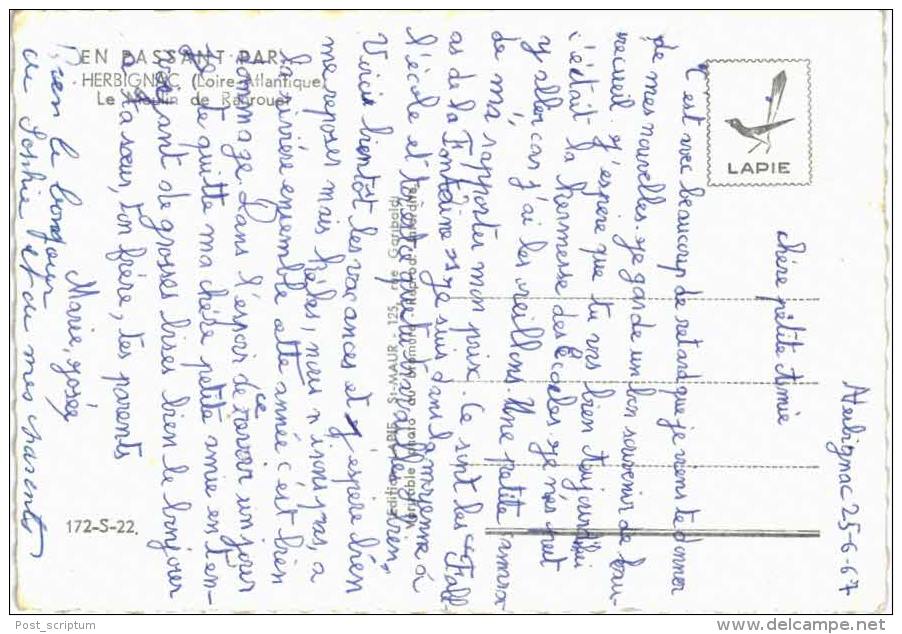 EN PASSANT PAR
HERBIGNAC (Loire-Atlantique)
Le Moulin de Ranrouet
LAPIE
172-S-22.
Editions LAPIE St-MAUR - 125, rue Garibaldi
Véritable Photo au Bromure - Reprod. Interdite
Herbignac 25-6-67
chère petite Amie
C'est avec beaucoup de retard que je viens te donner
de mes nouvelles. Je garde un bon souvenir de
recueil. J'espère que tu vas bien Aujourd'hui
c'était la kermesse des Ecoles je n'es peut
y aller car j'ai les oreillons. Une petite amie
de m'a rapporter mon prix. Ce sont les "Fabl-
es de la Fontaine" je suis dans la première à
l'école et toi est-ce que tu travailles bien.
Voici bientôt les vacances et j'espère bien
me reposer mais hélas, nous n'irons pas, a
la rivière ensemble cette année c'est bien
dommage. Dans l'espoir de ce revoir un jour
je te quitte ma chère petite amie en t'en-
voyant de grosses bises bien le bonjour
a ta sœur, ton frère, tes parents
Marie, josée
bien le bonjour
a Sophie et a mes parents
Post_scriptum
www.delcampe.net